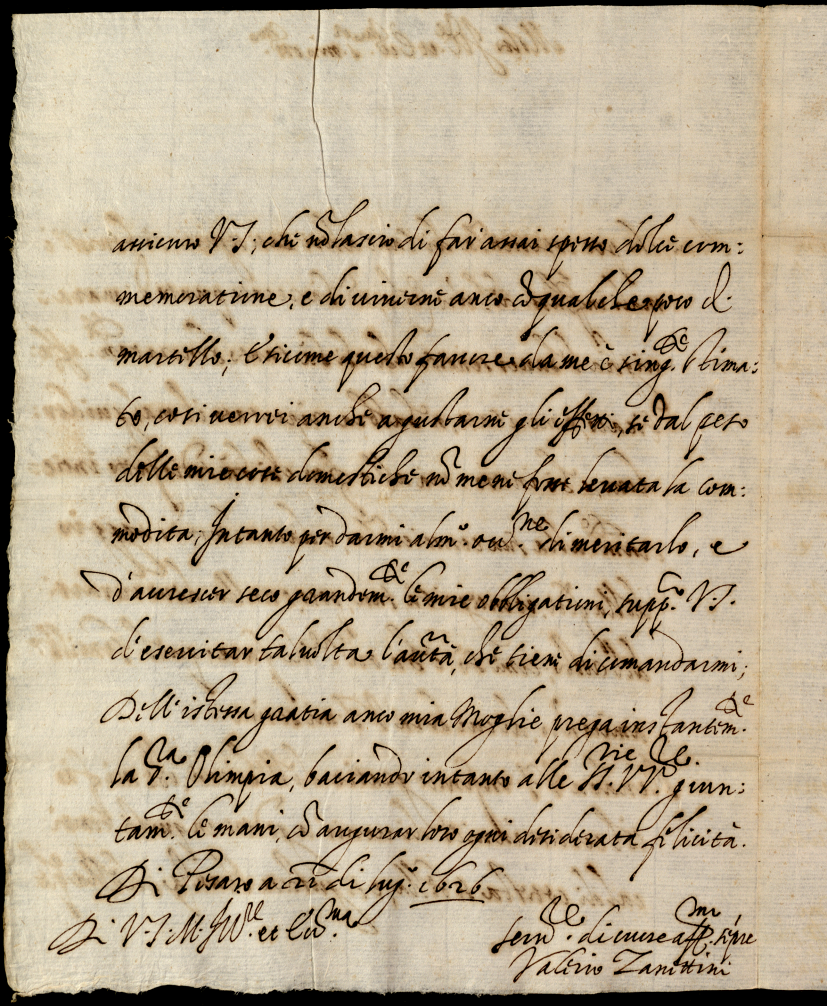 assicuro V.S., che nõ lascio di far' assai spesso dolce com:
memoratione, e di viverne anco cõ qualche poco di
martello; E sicome questo favore da me è sing.te stima:
to, così verrei anche a gustarne gli effetti, se dal peso
delle mie cose domestiche nõ me ne fosse levata la com:
modita; Intanto per darmi alm.o occ.ne di meritarlo, e
d'accrescer seco grandem.te le mie obbligationi, supp.co V.S.
d'esercitar talvolta l'auttà, che tiene di comandarmi;
Dell'istessa gratia anco mia Moglie prega instantem.te
la S.ra Olimpia, baciando intanto alle SS.rie VV.re giun:
tam.te le mani, cõ augurar loro ogni desiderata felicità.
Di Pesaro a di lug.o 1626
Di V.S. M. Ill.re et Ecc.ma
ser.re di cuore aff.mo sẽpre
Valerio Zanettini